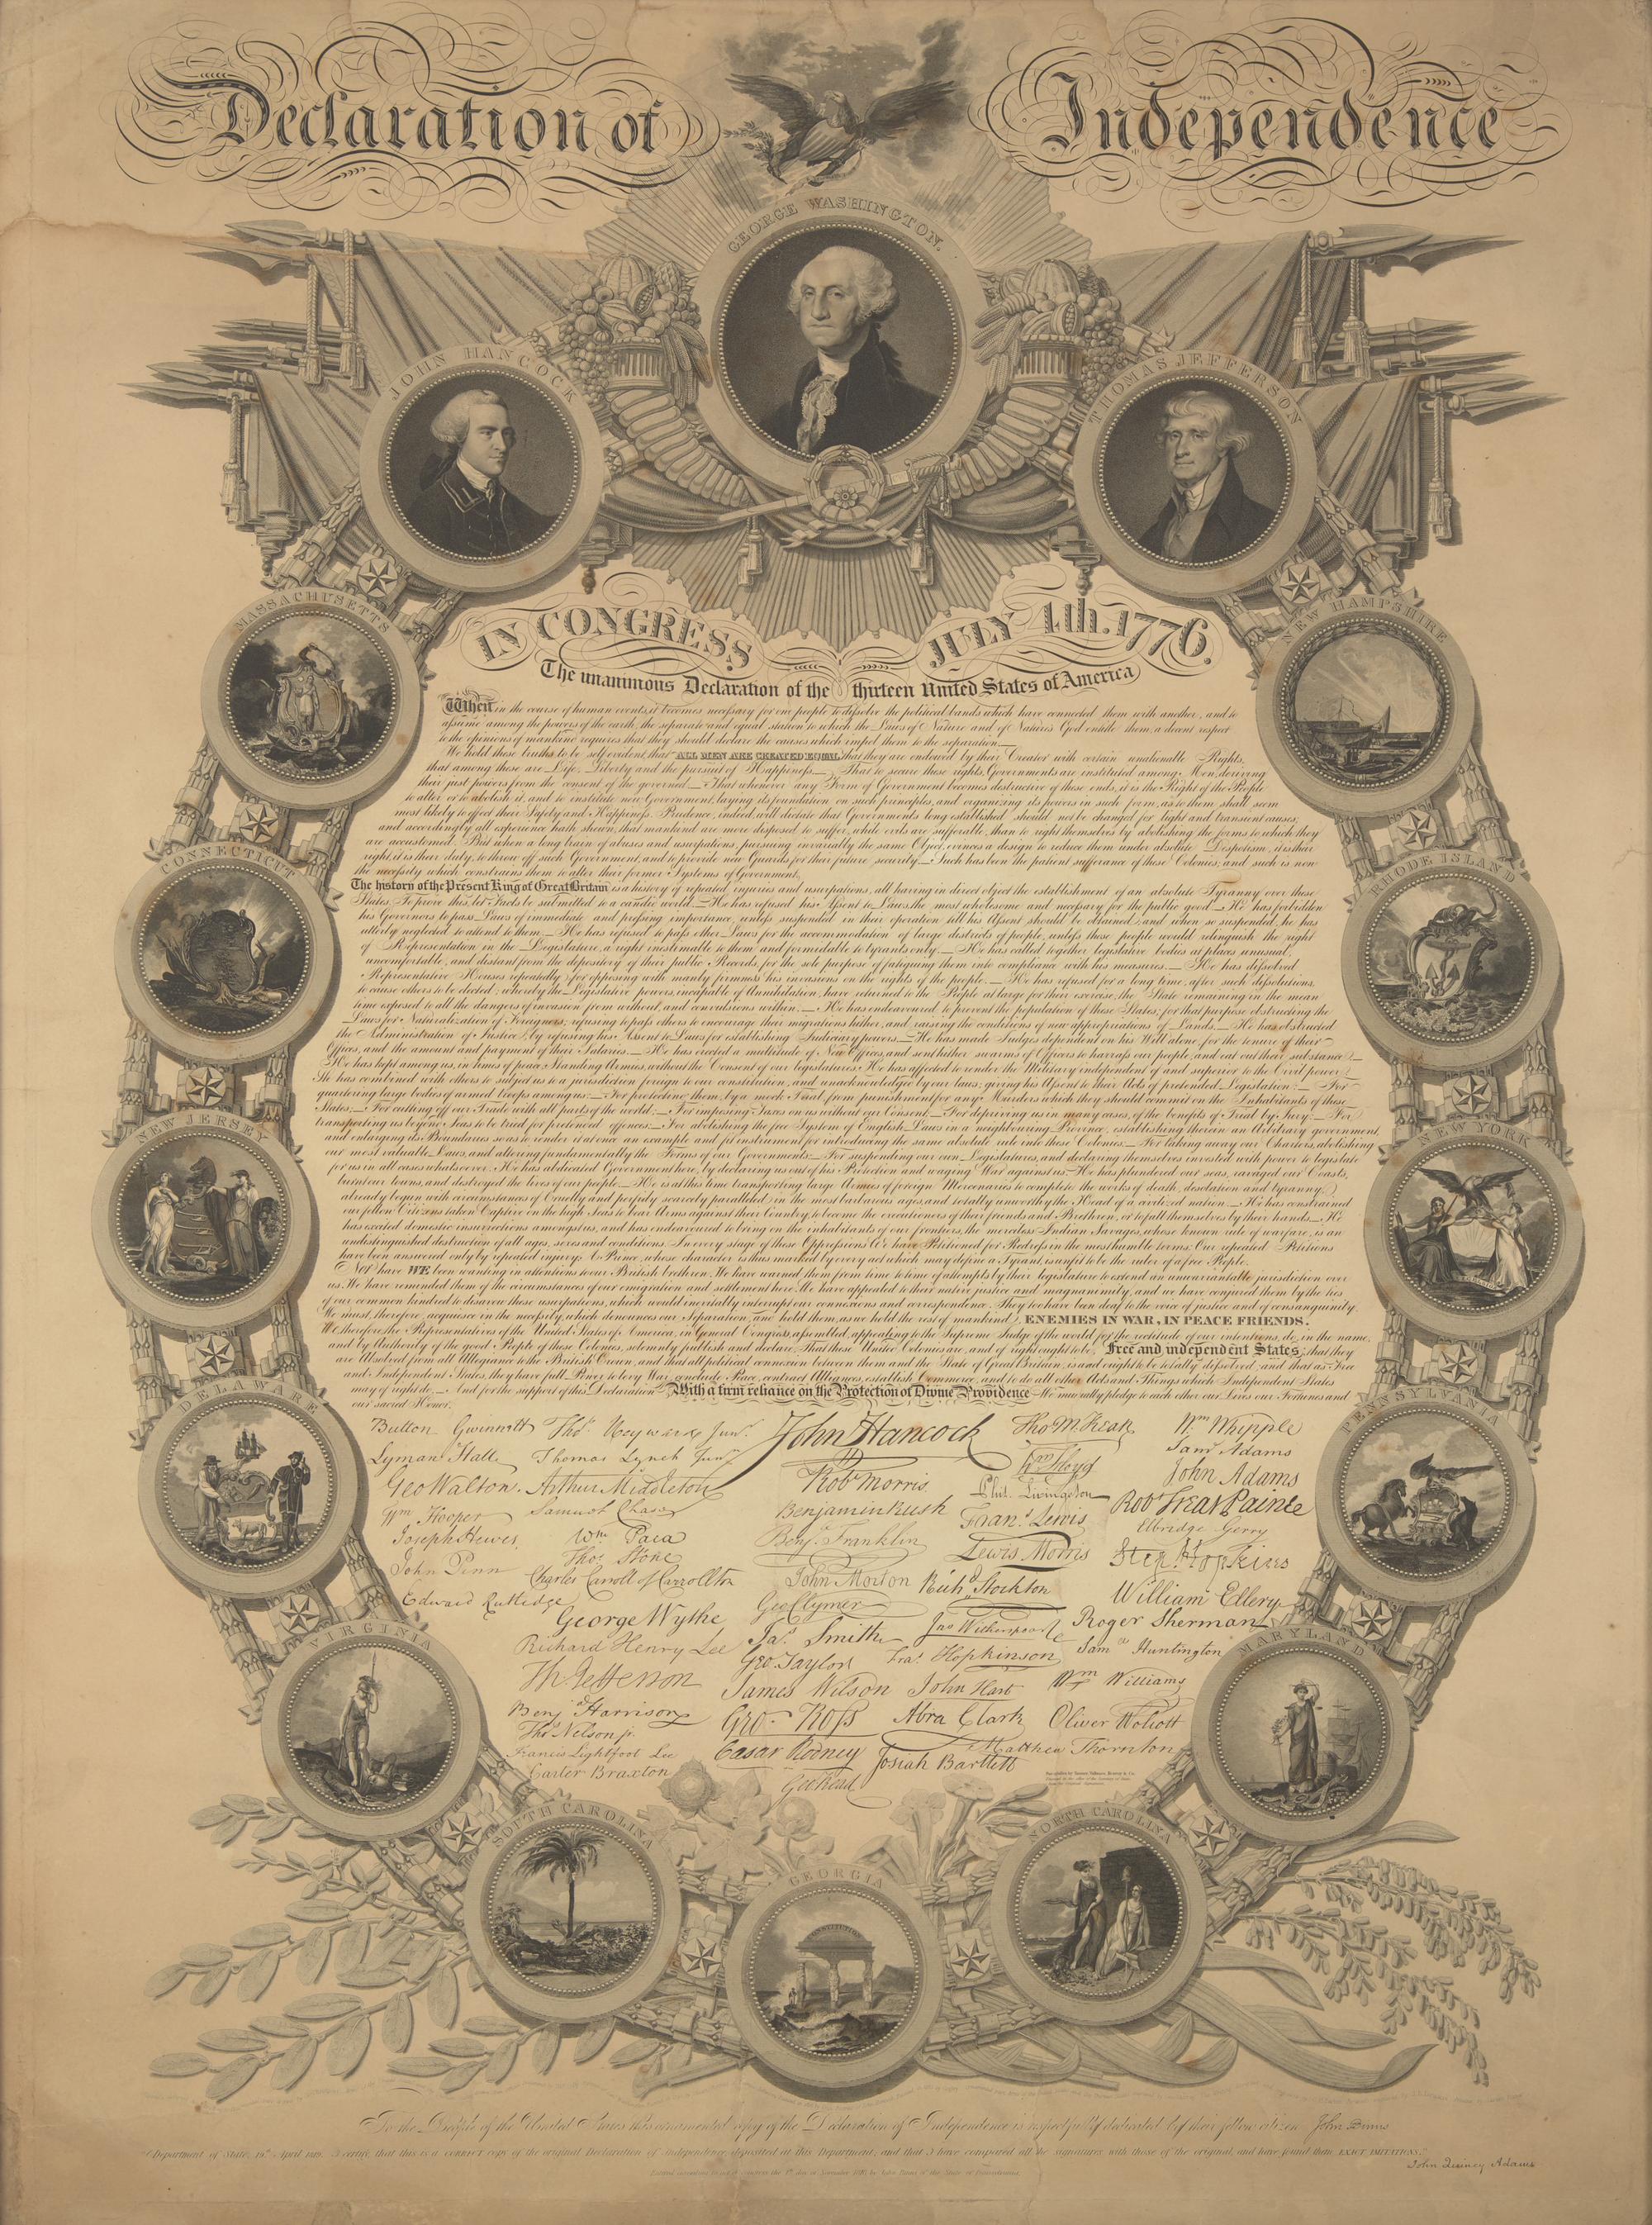 Declaration of Independence
GEORGE WASHINGTON.
JOHN HANCOCK
THOMAS JEFFERSON
IN CONGRESS JULY 4th. 1776.
The unanimous Declaration of the thirteen United States of America
When, in the course of human events, it becomes necessary for one people to dissolve the political bands which have connected them with another, and to
assume among the powers of the earth, the separate and equal station to which the Laws of Nature and of Nature's God entitle them, a decent respect
to the opinions of mankind requires that they should declare the causes which impel them to the separation.—
We hold these truths to be self evident, that ALL MEN ARE CREATED EQUAL, that they are endowed by their Creator with certain unalienable Rights,
that among these are Life, Liberty and the pursuit of Happiness.— That to secure these rights, Governments are instituted among Men, deriving
their just powers from the consent of the governed.— That whenever any Form of Government becomes destructive of these ends, it is the Right of the People
to alter or to abolish it, and to institute new Government, laying its foundation on such principles, and organizing its powers in such form, as to them shall seem
most likely to effect their Safety and Happiness. Prudence, indeed, will dictate that Governments long established should not be changed for light and transient causes;
and accordingly all experience hath shewn, that mankind are more disposed to suffer, while evils are sufferable, than to right themselves by abolishing the forms to which they
are accustomed. But when a long train of abuses and usurpations, pursuing invariably the same Object, evinces a design to reduce them under absolute Despotism, it is their
right, it is their duty, to throw off such Government, and to provide new Guards for their future security.— Such has been the patient sufferance of these Colonies; and such is now
the necessity which constrains them to alter their former Systems of Government.
The history of the Present King of Great Britain is a history of repeated injuries and usurpations, all having in direct object the establishment of an absolute Tyranny over these
States. To prove this, let Facts be submitted to a candid world.— He has refused his Assent to Laws, the most wholesome and necessary for the public good.— He has forbidden
his Governors to pass Laws of immediate and pressing importance, unless suspended in their operation till his Assent should be obtained; and when so suspended, he has
utterly neglected to attend to them.— He has refused to pass other Laws for the accommodation of large districts of people, unless those people would relinquish the right
of Representation in the Legislature, a right inestimable to them and formidable to tyrants only.— He has called together legislative bodies at places unusual,
uncomfortable, and distant from the depository of their public Records, for the sole purpose of fatiguing them into compliance with his measures.— He has dissolved
Representative Houses repeatedly, for opposing with manly firmness his invasions on the rights of the people.— He has refused for a long time, after such dissolutions,
to cause others to be elected; whereby the Legislative powers, incapable of Annihilation, have returned to the People at large for their exercise; the State remaining in the mean
time exposed to all the dangers of invasion from without, and convulsions within.— He has endeavoured to prevent the population of these States; for that purpose obstructing the
Laws for Naturalization of Foreigners; refusing to pass others to encourage their migrations hither, and raising the conditions of new appropriations of Lands.— He has obstructed
the Administration of Justice, by refusing his Assent to Laws for establishing Judiciary powers.— He has made Judges dependent on his Will alone, for the tenure of their
Offices, and the amount and payment of their Salaries.— He has erected a multitude of New Offices, and sent hither swarms of Officers to harrass our people, and eat out their substance.—
He has kept among us, in times of peace, Standing Armies, without the Consent of our legislatures. He has affected to render the Military independent of and superior to the Civil power.—
He has combined with others to subject us to a jurisdiction foreign to our constitution, and unacknowledged by our laws; giving his Assent to their Acts of pretended Legislation:— For
quartering large bodies of armed troops among us:— For protecting them, by a mock Trial from punishment for any Murders which they should commit on the Inhabitants of these
States:— For cutting off our Trade with all parts of the world:— For imposing Taxes on us without our Consent:— For depriving us in many cases, of the benefits of Trial by Jury:— For
transporting us beyond Seas to be tried for pretended offences:— For abolishing the free System of English Laws in a neighbouring Province, establishing therein an Arbitrary government,
and enlarging its Boundaries so as to render it at once an example and fit instrument for introducing the same absolute rule into these Colonies:— For taking away our Charters, abolishing
our most valuable Laws, and altering fundamentally the Forms of our Governments:— For suspending our own Legislatures, and declaring themselves invested with power to legislate
for us in all cases whatsoever. He has abdicated Government here, by declaring us out of his Protection and waging War against us.— He has plundered our seas, ravaged our Coasts,
burnt our towns, and destroyed the lives of our people.— He is at this time transporting large Armies of foreign Mercenaries to complete the works of death, desolation and tyranny,
already begun with circumstances of Cruelty and perfidy scarcely paralleled in the most barbarous ages, and totally unworthy the Head of a civilized nation.— He has constrained
our fellow Citizens taken Captive on the high Seas to bear Arms against their Country, to become the executioners of their friends and Brethren, or to fall themselves by their hands.— He
has excited domestic insurrections amongst us, and has endeavoured to bring on the inhabitants of our frontiers, the merciless Indian Savages, whose known rule of warfare, is an
undistinguished destruction of all ages, sexes and conditions. In every stage of these Oppressions We have Petitioned for Redress in the most humble terms: Our repeated Petitions
have been answered only by repeated injury. A Prince, whose character is thus marked by every act which may define a Tyrant, is unfit to be the ruler of a free People.
Nor have WE been wanting in attentions to our British brethren. We have warned them from time to time of attempts by their legislature to extend an unwarrantable jurisdiction over
us. We have reminded them of the circumstances of our emigration and settlement here. We have appealed to their native justice and magnanimity, and we have conjured them by the ties
of our common kindred to disavow these usurpations, which would inevitably interrupt our connexions and correspondence. They too have been deaf to the voice of justice and of consanguinity.
We must, therefore, acquiesce in the necessity, which denounces our Separation, and hold them, as we hold the rest of mankind, ENEMIES IN WAR, IN PEACE FRIENDS.
We, therefore, the Representatives of the United States of America, in General Congress, assembled, appealing to the Supreme Judge of the world for the rectitude of our intentions, do, in the name,
and by Authority of the good People of these Colonies, solemnly publish and declare, That these United Colonies are, and of right ought to be, Free and independent States; that they
are Absolved from all Allegiance to the British Crown, and that all political connexion between them and the State of Great Britain, is and ought to be totally dissolved; and that as Free
and Independent States, they have full Power to levy War, conclude Peace, contract Alliances, establish Commerce, and to do all other Acts and Things which Independent States
may of right do.— And for the support of this Declaration, With a firm reliance on the Protection of Divine Providence We mutually pledge to each other our Lives our Fortunes and
our sacred Honor.
Button Gwinnett
Lyman Hall
Geo Walton.
Wm Hooper
Joseph Hewes,
John Penn
Edward Rutledge
Thos. Heyward Junr.
Thomas Lynch Junr.
Arthur Middleton
Samuel Chase
Wm. Paca
Thos. Stone
Charles Carroll of Carrollton
George Wythe
Richard Henry Lee
Th Jefferson
Benj Harrison
Thos Nelson jr.
Francis Lightfoot Lee
Carter Braxton
John Hancock
Robt Morris
Benjamin Rush
Benj. Franklin
John Morton
Geo Clymer
Jas. Smith
Geo. Taylor
James Wilson
Geo. Ross
Caesar Rodney
Geo Read
Tho M:Kean
Wm Floyd
Phil. Livingston
Frans. Lewis
Lewis Morris
Richd. Stockton
Jno Witherspoon
Fras. Hopkinson
John Hart
Abra Clark
Josiah Bartlett
Wm Whipple
Saml Adams
John Adams
Robt Treat Paine
Elbridge Gerry
Step. Hopkins
William Ellery
Roger Sherman
Saml Huntington
Wm Williams
Oliver Wolcott
Matthew Thornton
MASSACHUSETTS
NEW HAMPSHIRE
CONNECTICUT
RHODE ISLAND
NEW JERSEY
NEW YORK
DELAWARE
PENNSYLVANIA
VIRGINIA
MARYLAND
SOUTH CAROLINA
NORTH CAROLINA
GEORGIA
To the People of the United States this ornamental copy of the Declaration of Independence is respectfully dedicated by their fellow citizen John Binns
"Department of State, 19th April 1819. I certify, that this is a CORRECT copy of the original Declaration of Independence, deposited at this Department; and that I have compared all the signatures with those of the original, and have found them EXACT IMITATIONS."
John Quincy Adams